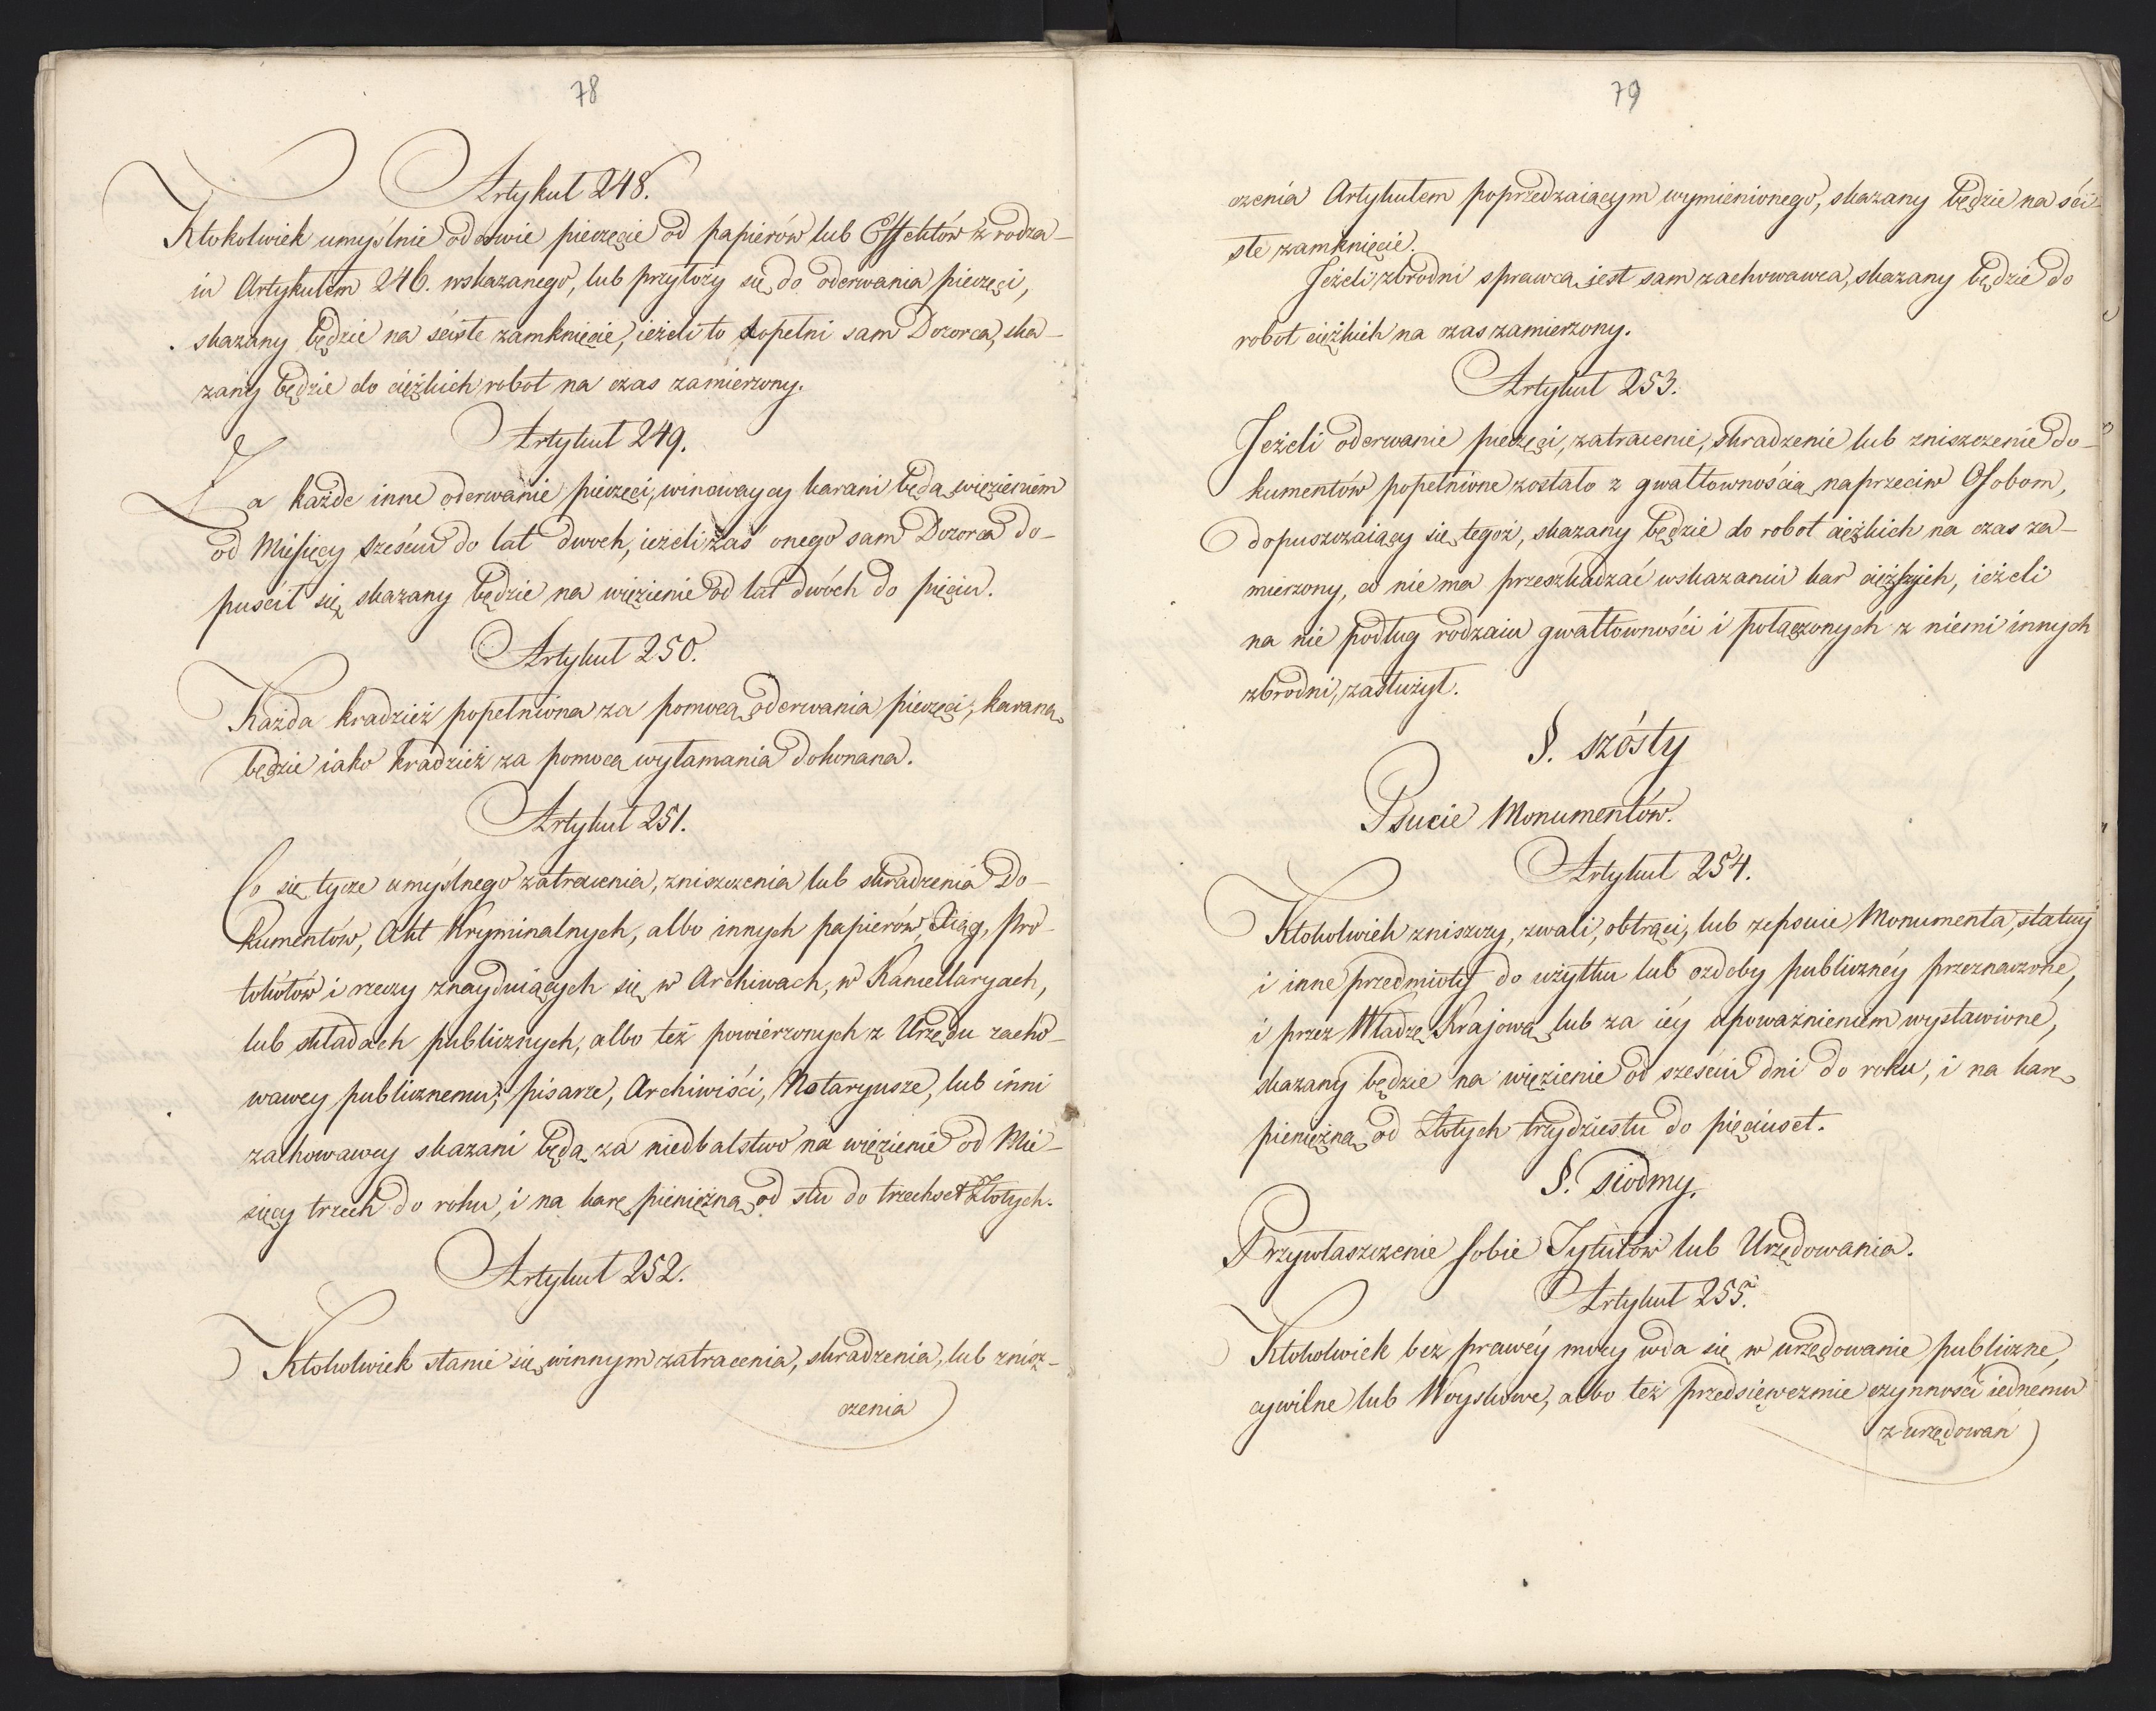 78
Artykuł 248.
Ktokolwiek umyślnie oderwie pieczęcie od papierów lub Effektów z rodza-
iu Artykułem 246. wskazanego, lub przyłoży się do oderwania pieczęci,
skazany będzie na ściste zamknięcie, ieżeli to dopełni sam Dozorca, ska-
zany będzie do ciężkich robot na czas zamierzony.
Artykuł 249.
Za każde inne oderwanie pieczęci, winowaycy karani będą więzieniem
od Miesięcy sześciu do lat dwoch, ieżeli zaś onego sam Dozorca do-
puścił się, skazany będzie na więzienie od lat dwóch do pięciu.
Artykuł 250.
Każda kradzież popełniona za pomocą oderwania pieczęci, karaną
będzie iako kradzież za pomocą wyłamania dokonana.
Artykuł 251.
Co się tycze umyślnego zatracenia, zniszczenia lub skradzenia Do-
kumentów, Akt Kryminalnych, albo innych papierów, Xiąg, Pro-
tokółów i rzeczy znayduiących się w Archiwach, w Kancellaryach,
lub składach publicznych, albo też powierzonych z Urzędu zacho-
wawcy publicznemu; pisarze, Archiwiści, Notaryusze, lub inni
zachowawcy skazani będą za niedbalstwo na więzienie od Mie-
sięcy trzech do roku, i na karę pieniężną od stu do trzechset Złotych.
Artykuł 252.
Ktokolwiek stanie się winnym zatracenia, skradzenia, lub znisz-
czenia
79
czenia Artykułem poprzedzaiącym wymienionego, skazany będzie na ści-
słe zamknięcie.
Jeżeli zbrodni sprawcą iest sam zachowawca, skazany będzie do
robot ciężkich na czas zamierzony.
Artykuł 253.
Jeżeli oderwanie pieczęci, zatracenie, skradzenie lub zniszczenie do-
kumentów popełnione zostało z gwałtownością naprzeciw Osobom,
dopuszczaiący się tegoż, skazany będzie do robot ciężkich na czas za-
mierzony, co nie ma przeszkadzać wskazaniu kar cięższych, ieżeli
na nie podług rodzaiu gwałtowności i połączonych z niemi innych
zbrodni, zasłużył.
§. szósty
Psucie Monumentów.
Artykuł 254.
Ktokolwiek zniszczy, zwali, obtrąci, lub zepsuie Monumenta, statuy
i inne przedmioty do użytku lub ozdoby publiczney przeznaczone,
i przez Władzę Krajową lub za iéy upoważnieniem wystawione,
skazany będzie na więzienie od sześciu dni do roku, i na karę
pieniężną od Złotych trzydziestu do pięciuset.
§. siodmy.
Przywłaszczenie sobie Tytułów lub Urzędowania.
Artykuł 255.
Ktokolwiek bez prawéy mocy wda się w urzędowanie publiczne,
cywilne lub Woyskowe, albo też przedsięweźmie czynności iednemu
z urzędowań